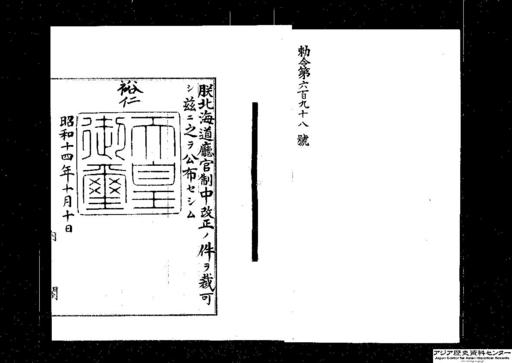 勅令第六百九十八號
朕北海道廳官制中改正ノ件ヲ裁可
シ茲ニ之ヲ公布セシム
裕仁
天皇
御璽
昭和十四年十月十日
内
閣
アジア歴史資料センター
Japan Center for Asian Historical Records